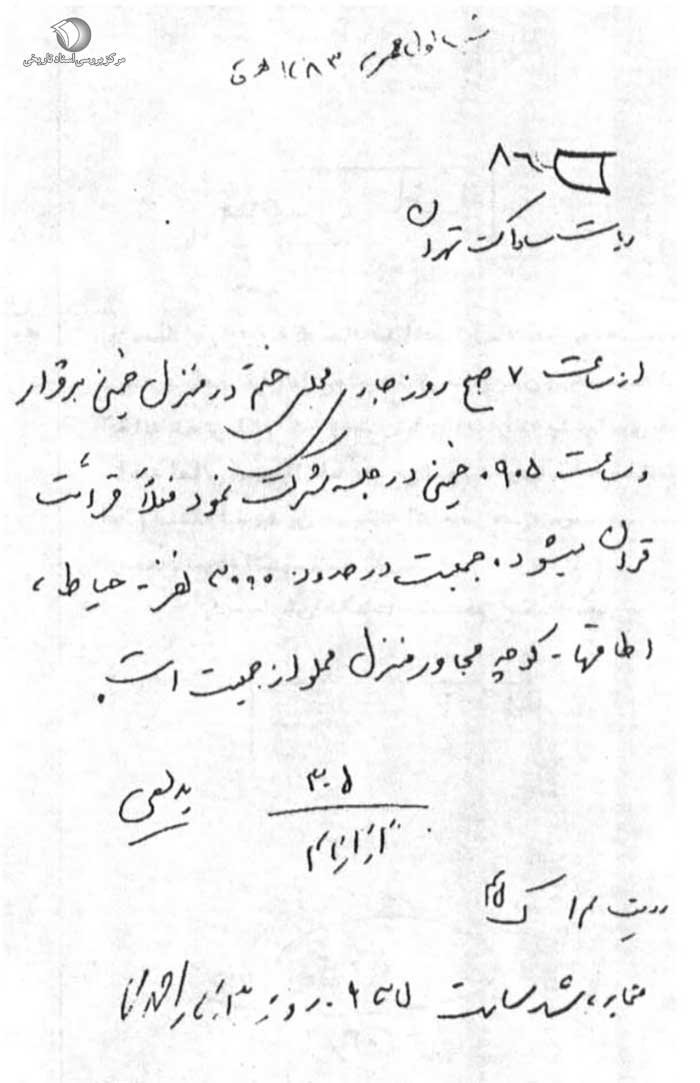 مرکز بررسی اسناد تاریخی
۸۶
ریاست ساواک تهران
از ساعت ۷ صبح روز جاری مجلس ختم در منزل خمینی برقرار
و ساعت ۰۹۰۵ خمینی در جلسه شرکت نمود فعلاً قرائت
قرآن میشود. جمعیت در حدود ۳۰۰۰ نفر - حیاط،
اطاقها - کوچه مجاور منزل مملو از جمعیت است.
۳۰۵
بدیعی
مخابره شد ساعت روز